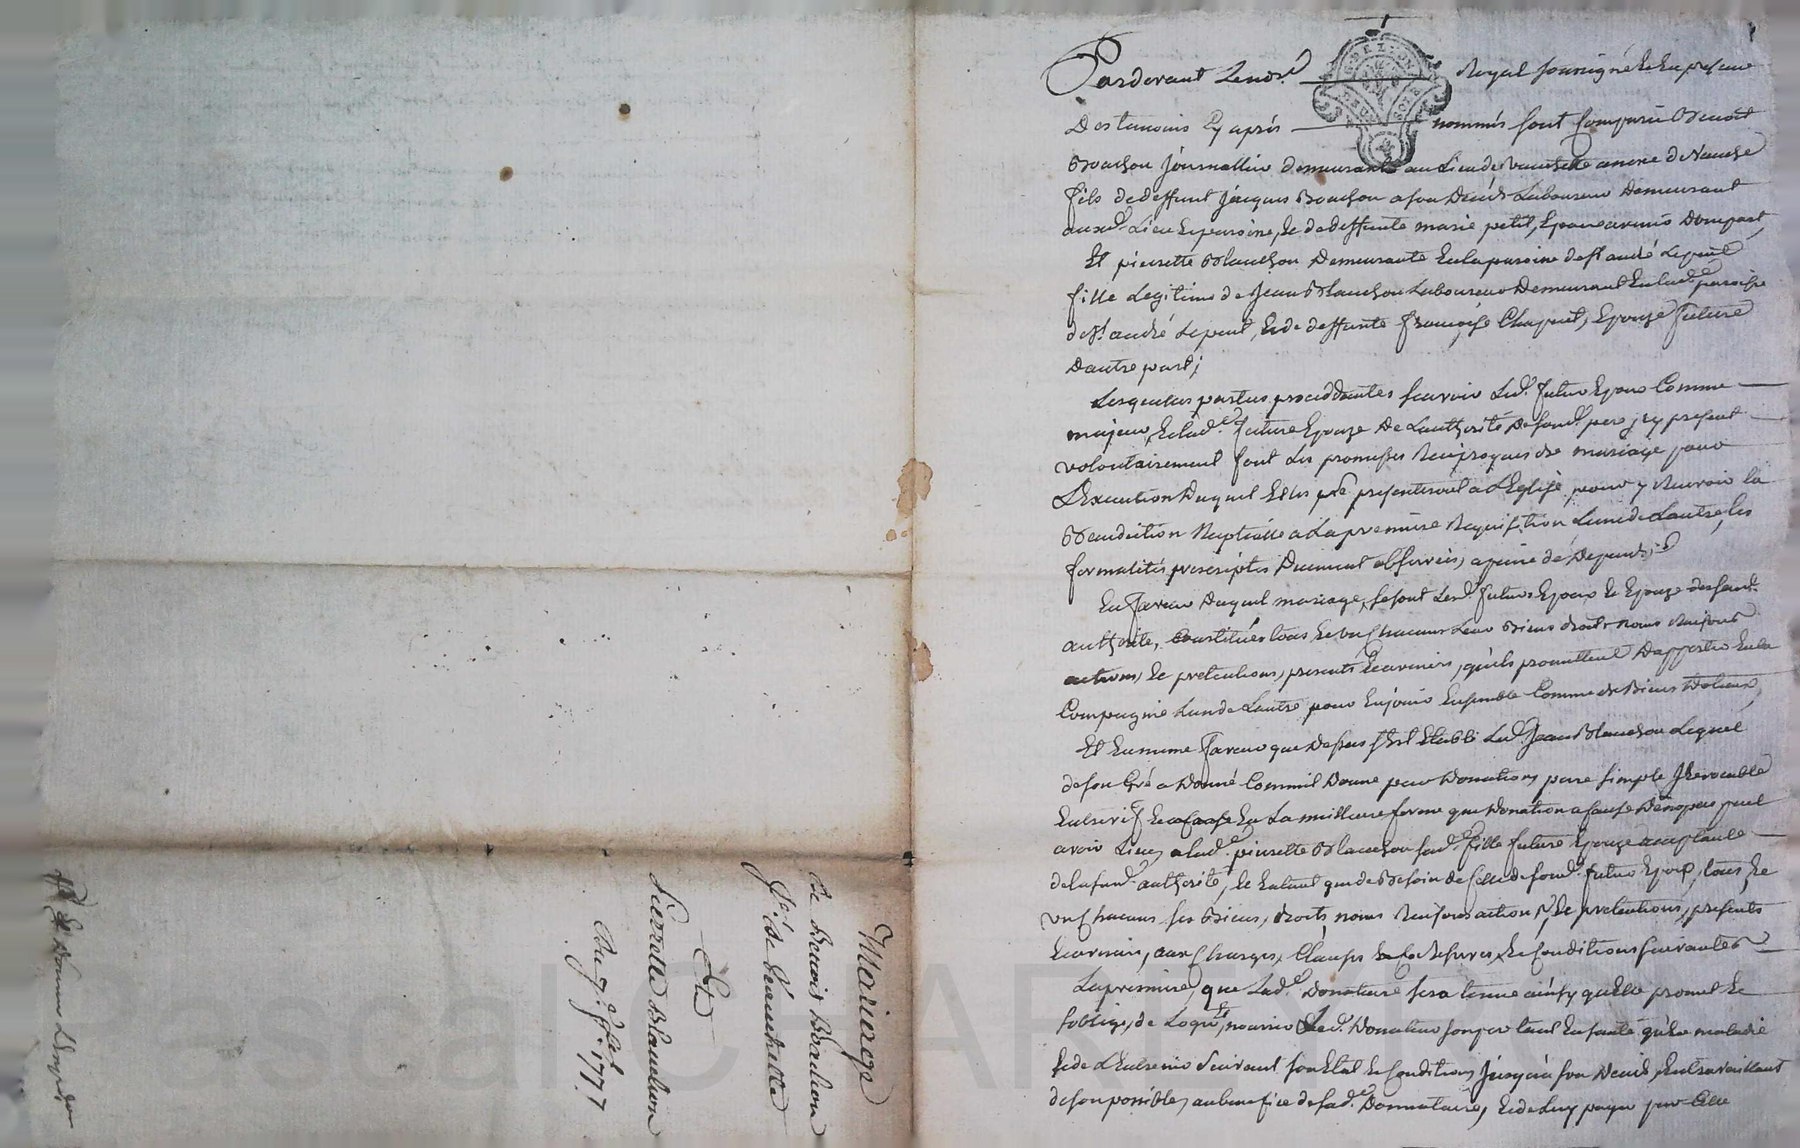 Mariage
de Benoit Brachon
Jer. de Vauchette
Et
Pierrette Blanchon
Du 9e 1777
Pardevant Lenore. Royal soussigné & En presence
Des temoins Cy après nommés sont Comparu Benoit
Brachon journallier demeurant au Lieu de Vauchette de
fils de deffunt jacques Brachon a son Deces Laboureur Demeurant
aud. Lieu & paroisse, & de deffunte marie petit, Epoux avenir D'une part,
Et pierrette Blanchon Demeurante En la paroisse de St andré Le puit
fille Legitime de Jean Blanchon Laboureur Demeurant En lad.e paroisse
de St. andré Le puit, & de deffunte françoise Chapuit, Epouze future
D'autre part;
Lesquelles parties procedantes scavoir Led. futur Epoux Comme
majeur, & lad.e future Epouze De L'authorité De son d. pere, icy present
volontairement font Les promesses Reciproques de mariage pour
L'Execution Duquel Elles se presenteront a L'Eglise pour y Recevoir la
Benediction Nuptialle a La premiere Requisition L'une de L'autre, les
formalités prescriptes Duement observées, a peine de Depends; &
En faveur Duquel mariage, se sont Lesd. futurs Epoux & Epouze
authorité, Constitués tous & un Chacuns Leur Biens droits noms Raisons
actions, & pretentions, presents & avenirs, qu'ils promettent D'apporter En la
Compagnie L'un de L'autre pour En jouir Ensemble Comme de Biens Dotaux,
Et En meme faveur que Dessus s'est Etabli Led. Jean Blanchon Lequel
de son Gré a Donné Comme il Donne par Donation pure simple Irrevocable
Entrevif En La meilleure forme que Donation a Cause De nopces peut
avoir Lieu, a lad.e pierrette Blanchon sad.e fille future Epouze acceptante
de la susd. authorité, & Entant que de Besoin de Celle de son d. futur Epoux, tous &
un Chacuns ses Biens, droits noms Raisons actions, & pretentions, presents
& avenir, aux Charges, Clauses Reserves & Conditions suivantes
La premiere, que Lad.e Donataire sera tenue ainsy qu'elle promet &
s'oblige, de Loger, nourrir Led. Donateur son pere tant En santé qu'En maladie
& de L'Entretenir suivant son Etat & Condition, jusqu'à son Deces, En travaillant
de son possible, au benefice de sad.e Donnataire, & de Luy payer par Elle